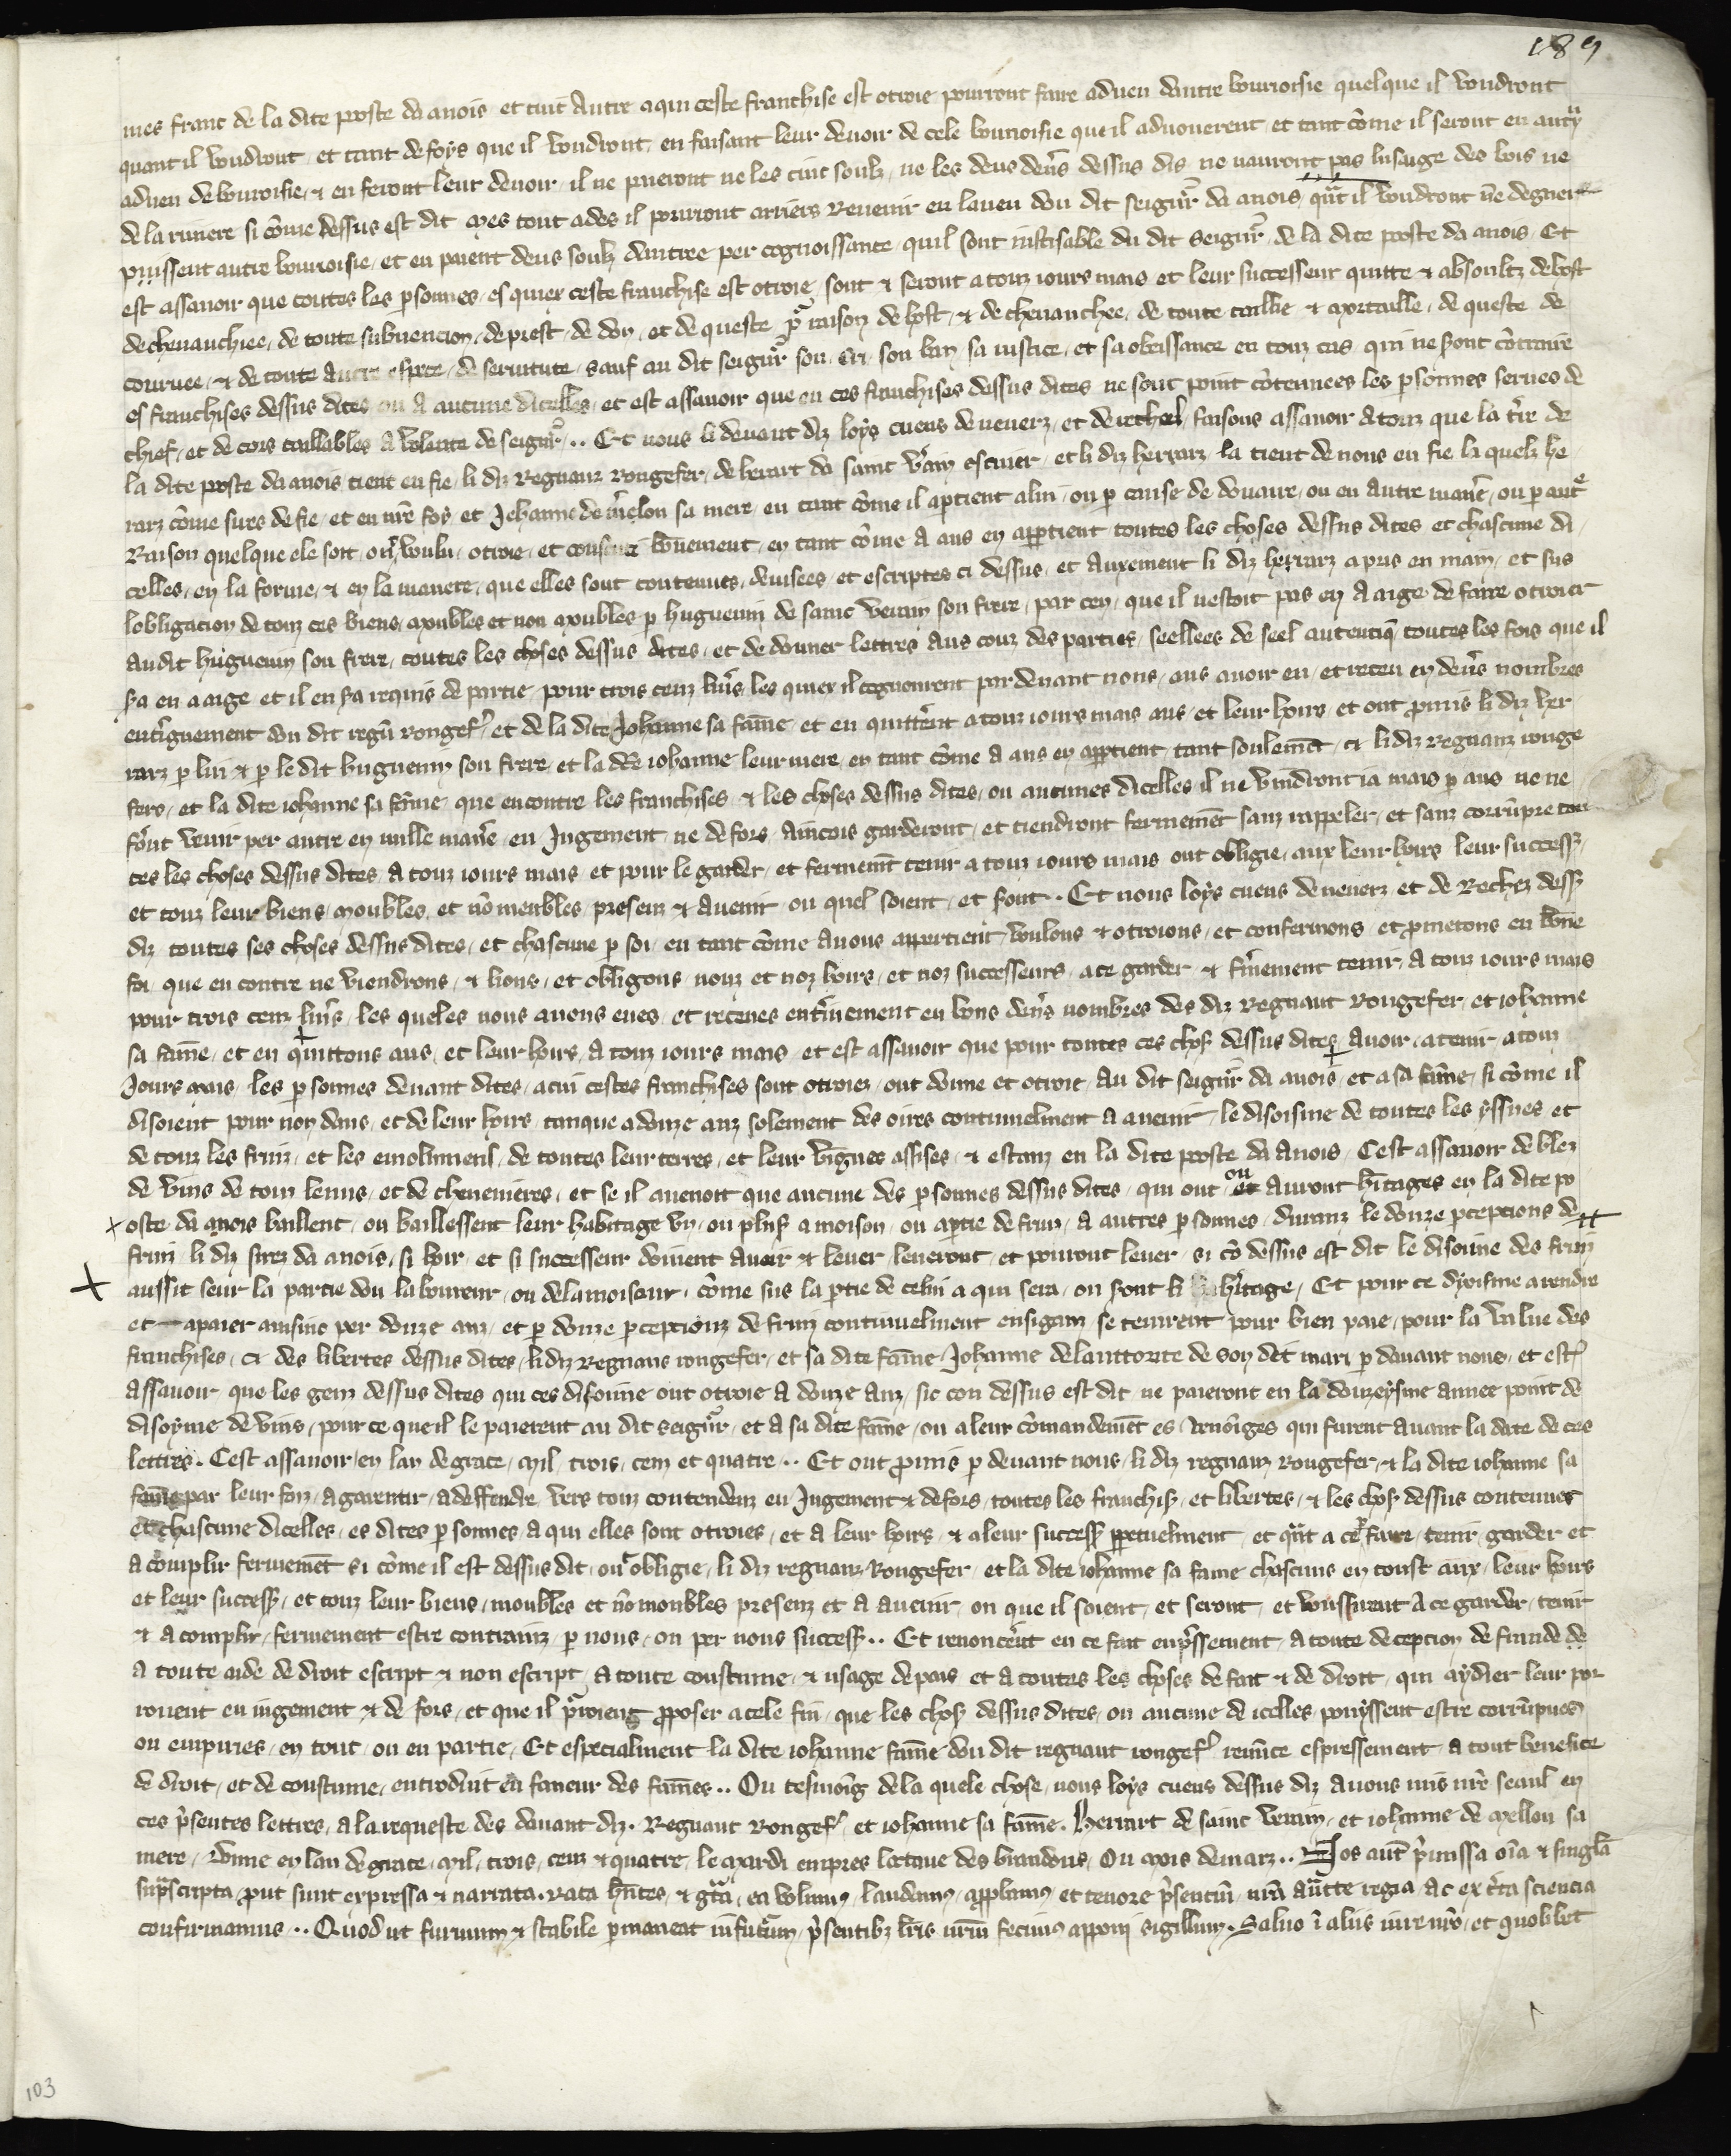 189
mes franc de la dite poste da anois et tuit Autre a qui ceste franchise est otroie pourront faire adveu dautre bourioisie quelque il voudront
quant il voudront et tant de foys que il voudront en faisant leur devoir de cele bourioisie que il advouerent et tant cōme il seront en autry
adveu de bourioisie & en feront leur devoir il ne paieront ne les cinc soulz ne les deus den̄s dessus dis ne nauront pas lusaige des bois ne
de la riviere si cōme dessus est dit Mes tout ades il pourront arriers Revenir en laveu dou dit seigūr da anois q̄nt il voudront ne deguer
puissent autre bourioisie et en paient deus soulz dantree per cognoissance quil sont iustisable du dit Seigūr de la dite poste da anois Et
est assavoir que toutes les p̱sonnes es quiex ceste franchise est otroie sont & seront a touz iours mais et leur successeur quitte & absoultz de host
de chevauchiee de toute subvencion de prest de don et de queste p̱ raison de host & de chevauchee de toute taillie & Mortaille de queste de
courvee & de toute autre espece de servitute sauf au dit seigūr son cri son ban sa iustice et sa obeissance en touz cas qui ne sont cōtraire
es franchises dessus dites ou a aucune dicelles et est assavoir que en ces franchises dessus dites ne sont point cōtenues les p̱sonnes serves de
chief et de cors taillables a volente de seigūr .. Et nous li devant diz loys cuens de nevers et de rethel faisons assavoir a touz que la t̄re de
la dite poste da anois tient en fie li diz Regnauz rougefer de herart de saint v̄ain escuier et li diz herrarz la tient de nous en fie li quelz he
rarz cōme sires de fie et en nr̄e foy et Jehanne de mēlon sa mere en tant cōme il ap̱tient a lui ou p̱ cause de douaire ou en autre man̄e ou p̱ aut̄e
Raison quelque ele soit ont voulu otroie et consenti bōnement en tant cōme a aus en app̱tient toutes les choses dessus dites et chascune di
celles en la forme & en la maniere que elles sont contenues devisees et escriptes ci dessus et auxement li diz herrarz a pris en main et sus
lobligacion de touz ces biens Moubles et non Moubles p̱ huguenin de saint verain son frere par ceu que il nestoit pas en a aige de faire otroier
audit huguenin son frere toutes les choses dessus dites et de donner lettres aus couz des parties seellees de seel autentiq̄ toutes les fois que il
s̱a en a aige et il en s̱a requis de partie pour trois cenz livr̄s les quiex il cognourent par devant nous aus avoir eu et receu en den̄s nombres
ent̄iguement dou dit regn̄ rougef̄ et de la dite Johanne sa fame et en quitter̄nt a touz iours mais aus et leur hoirs et ont p̱mis li diz her
rarz p̱ lui & p̱ le dit huguenin son frere et la dite iohanne leur mere en tant cōme a aus en app̱tient tant soulemēt ci li diz Regnauz rouge
fers et la dite iohanne sa fāme que encontre les franchises & les choses dessus dites ou aucunes dicelles il ne vaudront ia mais p̱ aus ne ne
ferōt venir per autre en nulle man̄e en Jugement ne defors Aincois garderont et tiendront fermemēt sanz rappeler et sanz corrūpre tou
tes les choses dessus dites a touz iours mais et pour le garder et fermemēt tenir a touz iours mais ont obligie aux leur hoirs leur success̄
et touz leur biens moubles et nō meubles presenz & avenir ou quel soient et sont .. Et nous loys cuens de nevers et de Rechez dess̄
diz toutes ses choses dessus dites et chascune p̱ soi en tant cōme a nous appertient voulons & otroions et confermons et p̱metons en bōne
foi que en contre ne viendrons & lions et obligons nouz et noz hoirs et noz successeurs a ce garder & f̄mement tenir A touz iours mais
pour trois cenz livr̄s les queles nous avons eues et receues ent̄inement en bons den̄s nombres des diz Regnaut Rougefer et iohanne
sa fame et en quittons aus et leur hoirs a touz iours mais et est assavoir que pour toutes ces chos̄ dessus dites avoir a tenir a touz
Jours mais les p̱sonnes devant dites a cui cestes franchises sont otroiez ont donne et otroie au dit seigūr da anois et a sa fāme si cōme il
disoient pour non deus et de leur hoirs tanque a douze anz solement des oires continuelment a avenir le disoisme de toutes les yssues et
de touz les fruiz et les emolumens de toutes leur terres et leur vignes assises & estanz en la dite poste da Anois Cest assavoir de blez
de vins de touz lenus et de chenevieres et se il avenoit que aucune des p̱sonnes dessus dites qui ont ou et auront h̄itages en la dite po
oste da anois baillent ou baillessent leur habitage vn ou plus̄ a moison ou a p̱tie de fruiz a autres p̱sonnes duranz le douze p̱cepcions de
fruiz li diz sires da anois si hoir et si successeur doivent avoir & lever leveront et pourront lever si cō dessus est dit le disoime des fruiz
aussit seur la partie dou laboureur ou de la moiseur cōme sus la p̱tie de celui a qui sera ou sont li h̄itage Et pour ce dyoisme a rendre
et a paier ainsinc per douze anz et p̱ douze p̱cepcionz de fruiz continuelment ensigam se tenirent pour bien paie pour la value des
franchises & des libertes dessus dites li diz Regnaus rougefer et sa dite fāme Johanne de lauttorite de son dit mari p̱ davant nous et est
assavoir que les genz dessus dites qui ces disoime ont otroie a douze anz sic con dessus est dit ne paieront en la douzeysme annee point de
disoyme de vins pour ce que il le paierent au dit seigūr et a sa dite fāme ou a leur cōmandemēt es venōiges qui furent avant la date de ces
lettres . Cest assavoir en lan de grace Mil trois cenz et quatre .. Et ont p̱mis p̱ devant nous li diz regnauz Rougefer & la dite iohanne sa
fame par leur foiz a garentir a deffendre vers touz contendenz en Jugement & defors toutes les franchis̄ et libertes & les chos̄ dessus contenues
et chascune dicelles es dites p̱sonnes a qui elles sont otroies et a leur hoirs & a leur success̄ p̱petuelment et q̄nt a ce faire tenir garder et
a complir fermemēt si cōme il est dessus dit ont obligie li diz regnauz Rougefer et la dite iohanne sa fame chascuns en tout aux leur hoirs
et leur success̄ et touz leur biens moubles et nō moubles presenz et a avenir ou que il soient et seront et voussirent a ce garder tenir
& a complir fermement estre contrainz p̱ nous ou per nous success̄ .. Et renoncer̄nt en ce fait exp̄ssement a toute decepcion de fraude de
a toute aide de droit escript & non escript a toute coustume & usage de pais et a toutes les choses de fait & de droit qui aydier leur por
roient en iugement & de fors et que il p̱roient p̱poser a cele fin que les chos̄ dessus dites ou aucune de icelles pouyssent estre corrūpues
ou empirees en tout ou en partie Et especialment la dite iohanne fāme dou dit regnaut rougef̄ renūce espressement a tout benefice
de droit et de coustume entroduit en faveur des fāmes .. Ou tesmoīg de la quele chose nous loys cuens dessus diz avons mis nr̄e seaul en
ces p̄sentes lettres a la requeste des devant diz . Regnaut Rougef̄ et iohanne sa fāme . Herrart de saint Verain et iohanne de Mellon sa
mere . Donne en lan de grace Mil trois cenz & quatre le Mardi empres loctave des brandons Ou Mois de marz .. Nos aut̄ p̄missa oīa & singl̄a
sup̄scripta p̱ut sunt expressa & narrata . Rata h̄ntes & gr̄ta ea volumus laudamus app̱bamus et tenore p̄sentiū nr̄a auc̄tte regia ac ex c̄ta sciencia
confirmamus .. Quod ut firmum & stabile p̱maneat in fut̄um p̄sentibz lr̄is nr̄um fecimus apponi sigillum . Salvo ī aliis iure nr̄o et quolibet
103